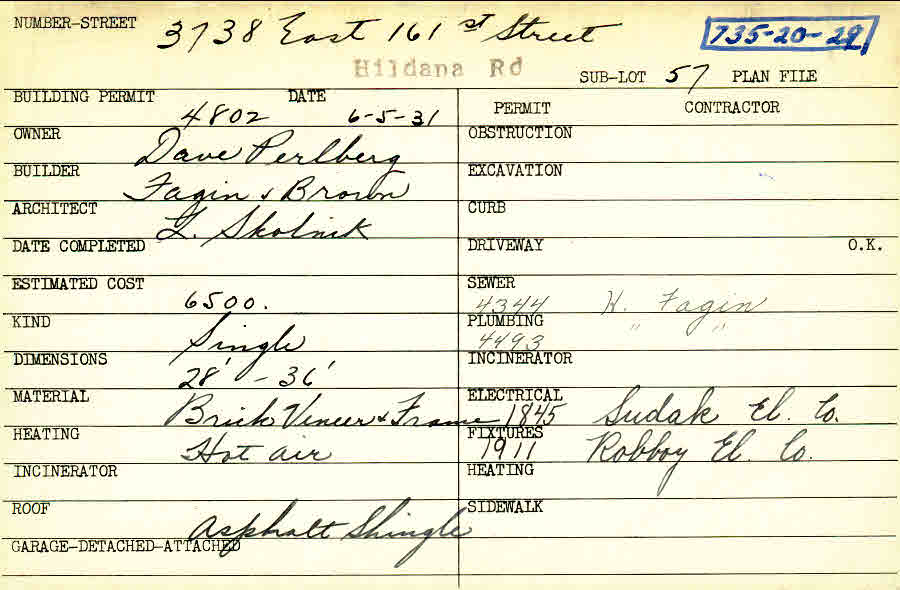 NUMBER-STREET 3738 East 161 st Street 735-20-29
Hildana Rd
SUB-LOT 57 PLAN FILE
BUILDING PERMIT 4802 DATE 6-5-31
PERMIT CONTRACTOR
OWNER Dave Perlberg
OBSTRUCTION
BUILDER Fagin & Brown
EXCAVATION
ARCHITECT L. Skolnik
CURB
DATE COMPLETED
DRIVEWAY O.K.
ESTIMATED COST 6500.
SEWER 4344 H. Fagin
KIND Single
PLUMBING 4493 " "
DIMENSIONS 28' - 36'
INCINERATOR
MATERIAL Brick Veneer & Frame
ELECTRICAL 1845 Sudak El. Co.
HEATING Hot air
FIXTURES 1911 Robboy El. Co.
INCINERATOR
HEATING
ROOF Asphalt Shingle
SIDEWALK
GARAGE-DETACHED-ATTACHED